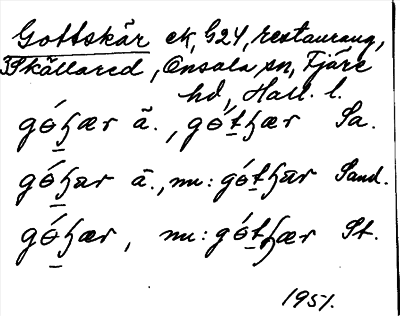 Gottskär ek, G24, restaurang,
Skällared, Onsala sn, Fjäre
hd, Hall. l.
gó̱ꜧær ä., gót̠ꜧær Sa.
gó̱ꜧær ä., nu: gót̠ꜧær Sand.
gó̱ꜧær, nu: gót̠ꜧær St.
1951.